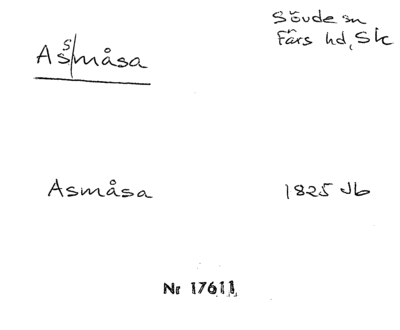 Sövde sn
Färs hd, Sk
As/måsa
Asmåsa 1825 Jb
Nr 17611